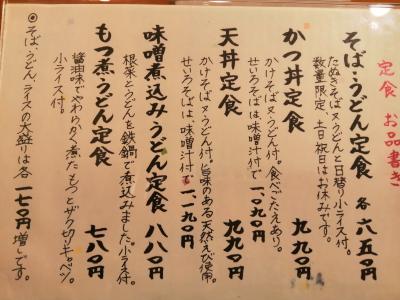 定食 お品書き
そば・うどん定食 各 六五〇円
たぬきそば又うどんと日替り小ライス付。
数量限定、土日祝日はお休みです。
かつ丼定食 九九〇円
かけそば又うどん付。食べごたえあり。
せいろそばは、味噌汁付で 一、〇九〇円
天丼定食 九九〇円
かけそば又うどん付。旨味のある天然えび使用。
せいろそばは、味噌汁付で 一、一九〇円
味噌煮込みうどん定食 八八〇円
根菜とうどんを鉄鍋で煮込みました。小ライス付。
もつ煮・うどん定食 七八〇円
醤油味でやわらかく煮たもつとザク切りキャベツ。
小ライス付。
◎そば、うどん、ライスの大盛りは各 一七〇円 増しです。